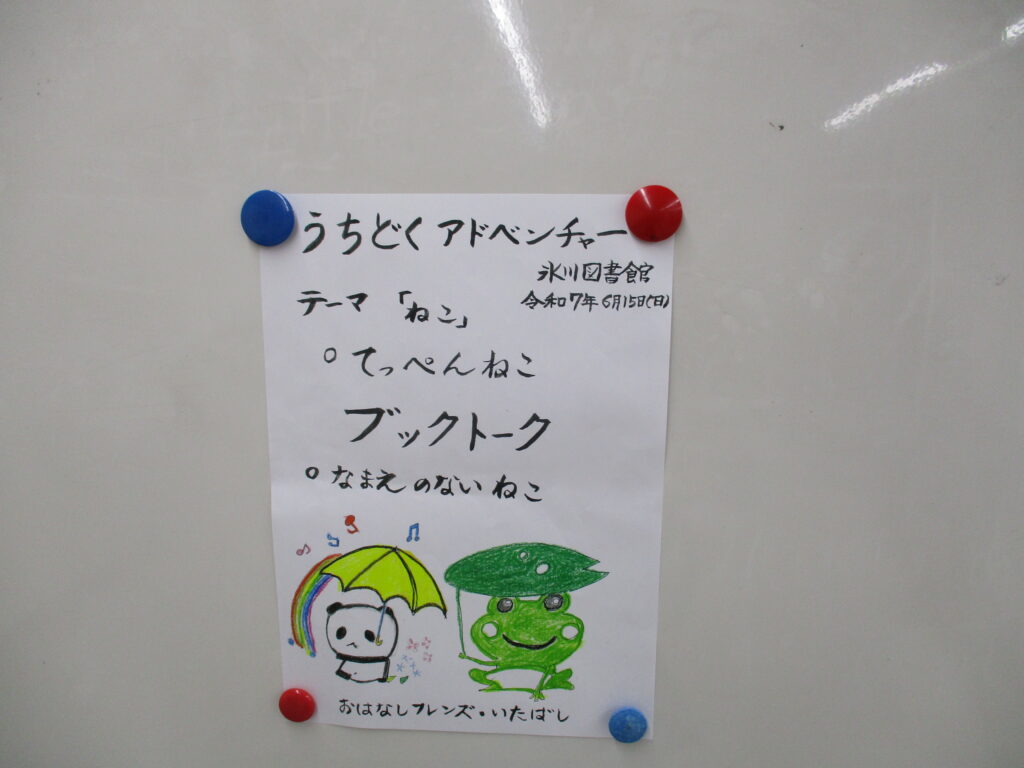 うちどくアドベンチャー
氷川図書館
令和7年6月15日(日)
テーマ「ねこ」
○てっぺんねこ
ブックトーク
○なまえのないねこ
おはなしフレンズ・いたばし